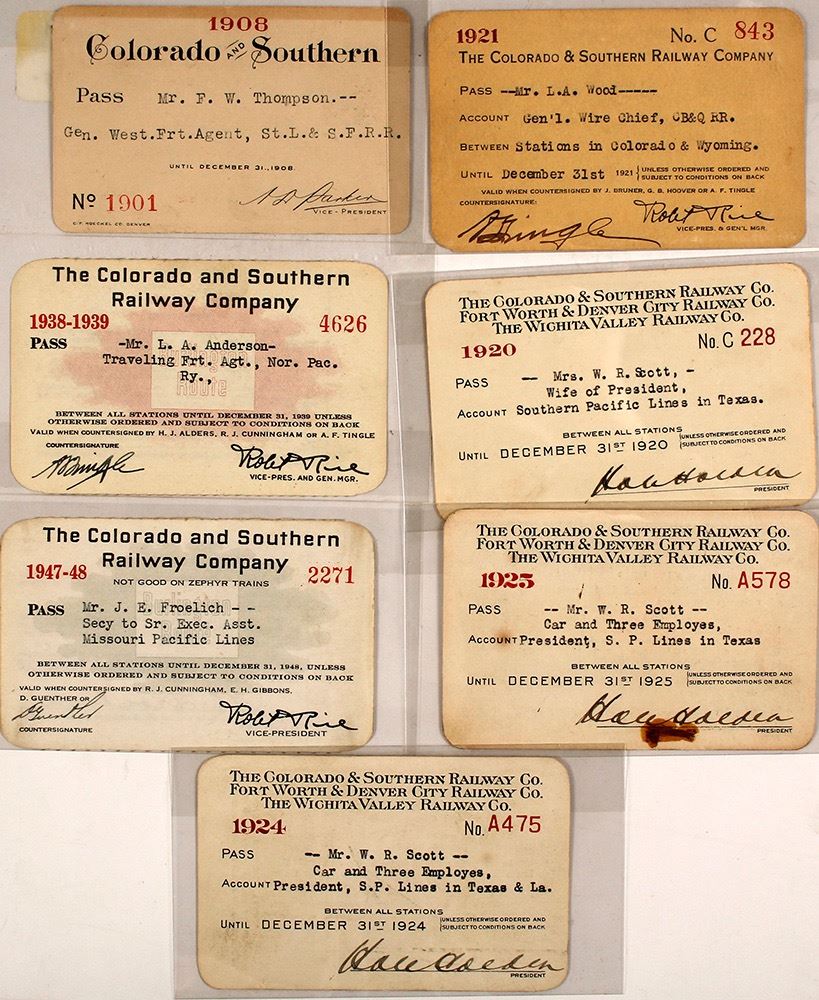 1908
Colorado AND Southern
Pass Mr. F. W. Thompson.--
Gen. West.Frt.Agent, St.L.& S.F.R.R.
UNTIL DECEMBER 31.,1908.
Nº 1901
VICE - PRESIDENT
C.F. HOECKEL CO. DENVER
1921 No. C 843
THE COLORADO & SOUTHERN RAILWAY COMPANY
PASS --Mr. L.A. Wood-----
ACCOUNT Gen'l. Wire Chief, CB&Q RR.
BETWEEN Stations in Colorado & Wyoming.
UNTIL December 31st 1921 UNLESS OTHERWISE ORDERED AND
SUBJECT TO CONDITIONS ON BACK
VALID WHEN COUNTERSIGNED BY J. BRUNER, G. B. HOOVER OR A. F. TINGLE
COUNTERSIGNATURE:
AFTingle Robt Rice
VICE-PRES. & GEN'L MGR.
The Colorado and Southern
Railway Company
1938-1939 4626
PASS -Mr. L. A. Anderson-
Traveling Frt. Agt., Nor. Pac.
Ry.,
Burlington
Route
BETWEEN ALL STATIONS UNTIL DECEMBER 31, 1939 UNLESS
OTHERWISE ORDERED AND SUBJECT TO CONDITIONS ON BACK
VALID WHEN COUNTERSIGNED BY H. J. ALDERS, R. J. CUNNINGHAM OR A. F. TINGLE
COUNTERSIGNATURE
AFTingle Robt Rice
VICE-PRES. AND GEN. MGR.
THE COLORADO & SOUTHERN RAILWAY CO.
FORT WORTH & DENVER CITY RAILWAY CO.
THE WICHITA VALLEY RAILWAY CO.
1920 No. C 228
PASS -- Mrs. W. R. Scott, -
Wife of President,
ACCOUNT Southern Pacific Lines in Texas.
BETWEEN ALL STATIONS
UNTIL DECEMBER 31ST 1920 UNLESS OTHERWISE ORDERED AND
SUBJECT TO CONDITIONS ON BACK
Hale Holden
PRESIDENT
The Colorado and Southern
Railway Company
1947-48 NOT GOOD ON ZEPHYR TRAINS 2271
PASS Mr. J. E. Froelich - -
Secy to Sr. Exec. Asst.
Missouri Pacific Lines
Burlington
BETWEEN ALL STATIONS UNTIL DECEMBER 31, 1948, UNLESS
OTHERWISE ORDERED AND SUBJECT TO CONDITIONS ON BACK
VALID WHEN COUNTERSIGNED BY R. J. CUNNINGHAM, E. H. GIBBONS,
D. GUENTHER OR
DGuenther Robt Rice
COUNTERSIGNATURE VICE-PRESIDENT
THE COLORADO & SOUTHERN RAILWAY CO.
FORT WORTH & DENVER CITY RAILWAY CO.
THE WICHITA VALLEY RAILWAY CO.
1925 No. A578
PASS -- Mr. W. R. Scott --
Car and Three Employes,
ACCOUNT President, S. P. Lines in Texas
BETWEEN ALL STATIONS
UNTIL DECEMBER 31ST 1925 UNLESS OTHERWISE ORDERED AND
SUBJECT TO CONDITIONS ON BACK
Hale Holden
PRESIDENT
THE COLORADO & SOUTHERN RAILWAY CO.
FORT WORTH & DENVER CITY RAILWAY CO.
THE WICHITA VALLEY RAILWAY CO.
1924 No. A475
PASS -- Mr. W. R. Scott --
Car and Three Employes,
ACCOUNT President, S.P. Lines in Texas & La.
BETWEEN ALL STATIONS
UNTIL DECEMBER 31ST 1924 UNLESS OTHERWISE ORDERED AND
SUBJECT TO CONDITIONS ON BACK
Hale Holden
PRESIDENT